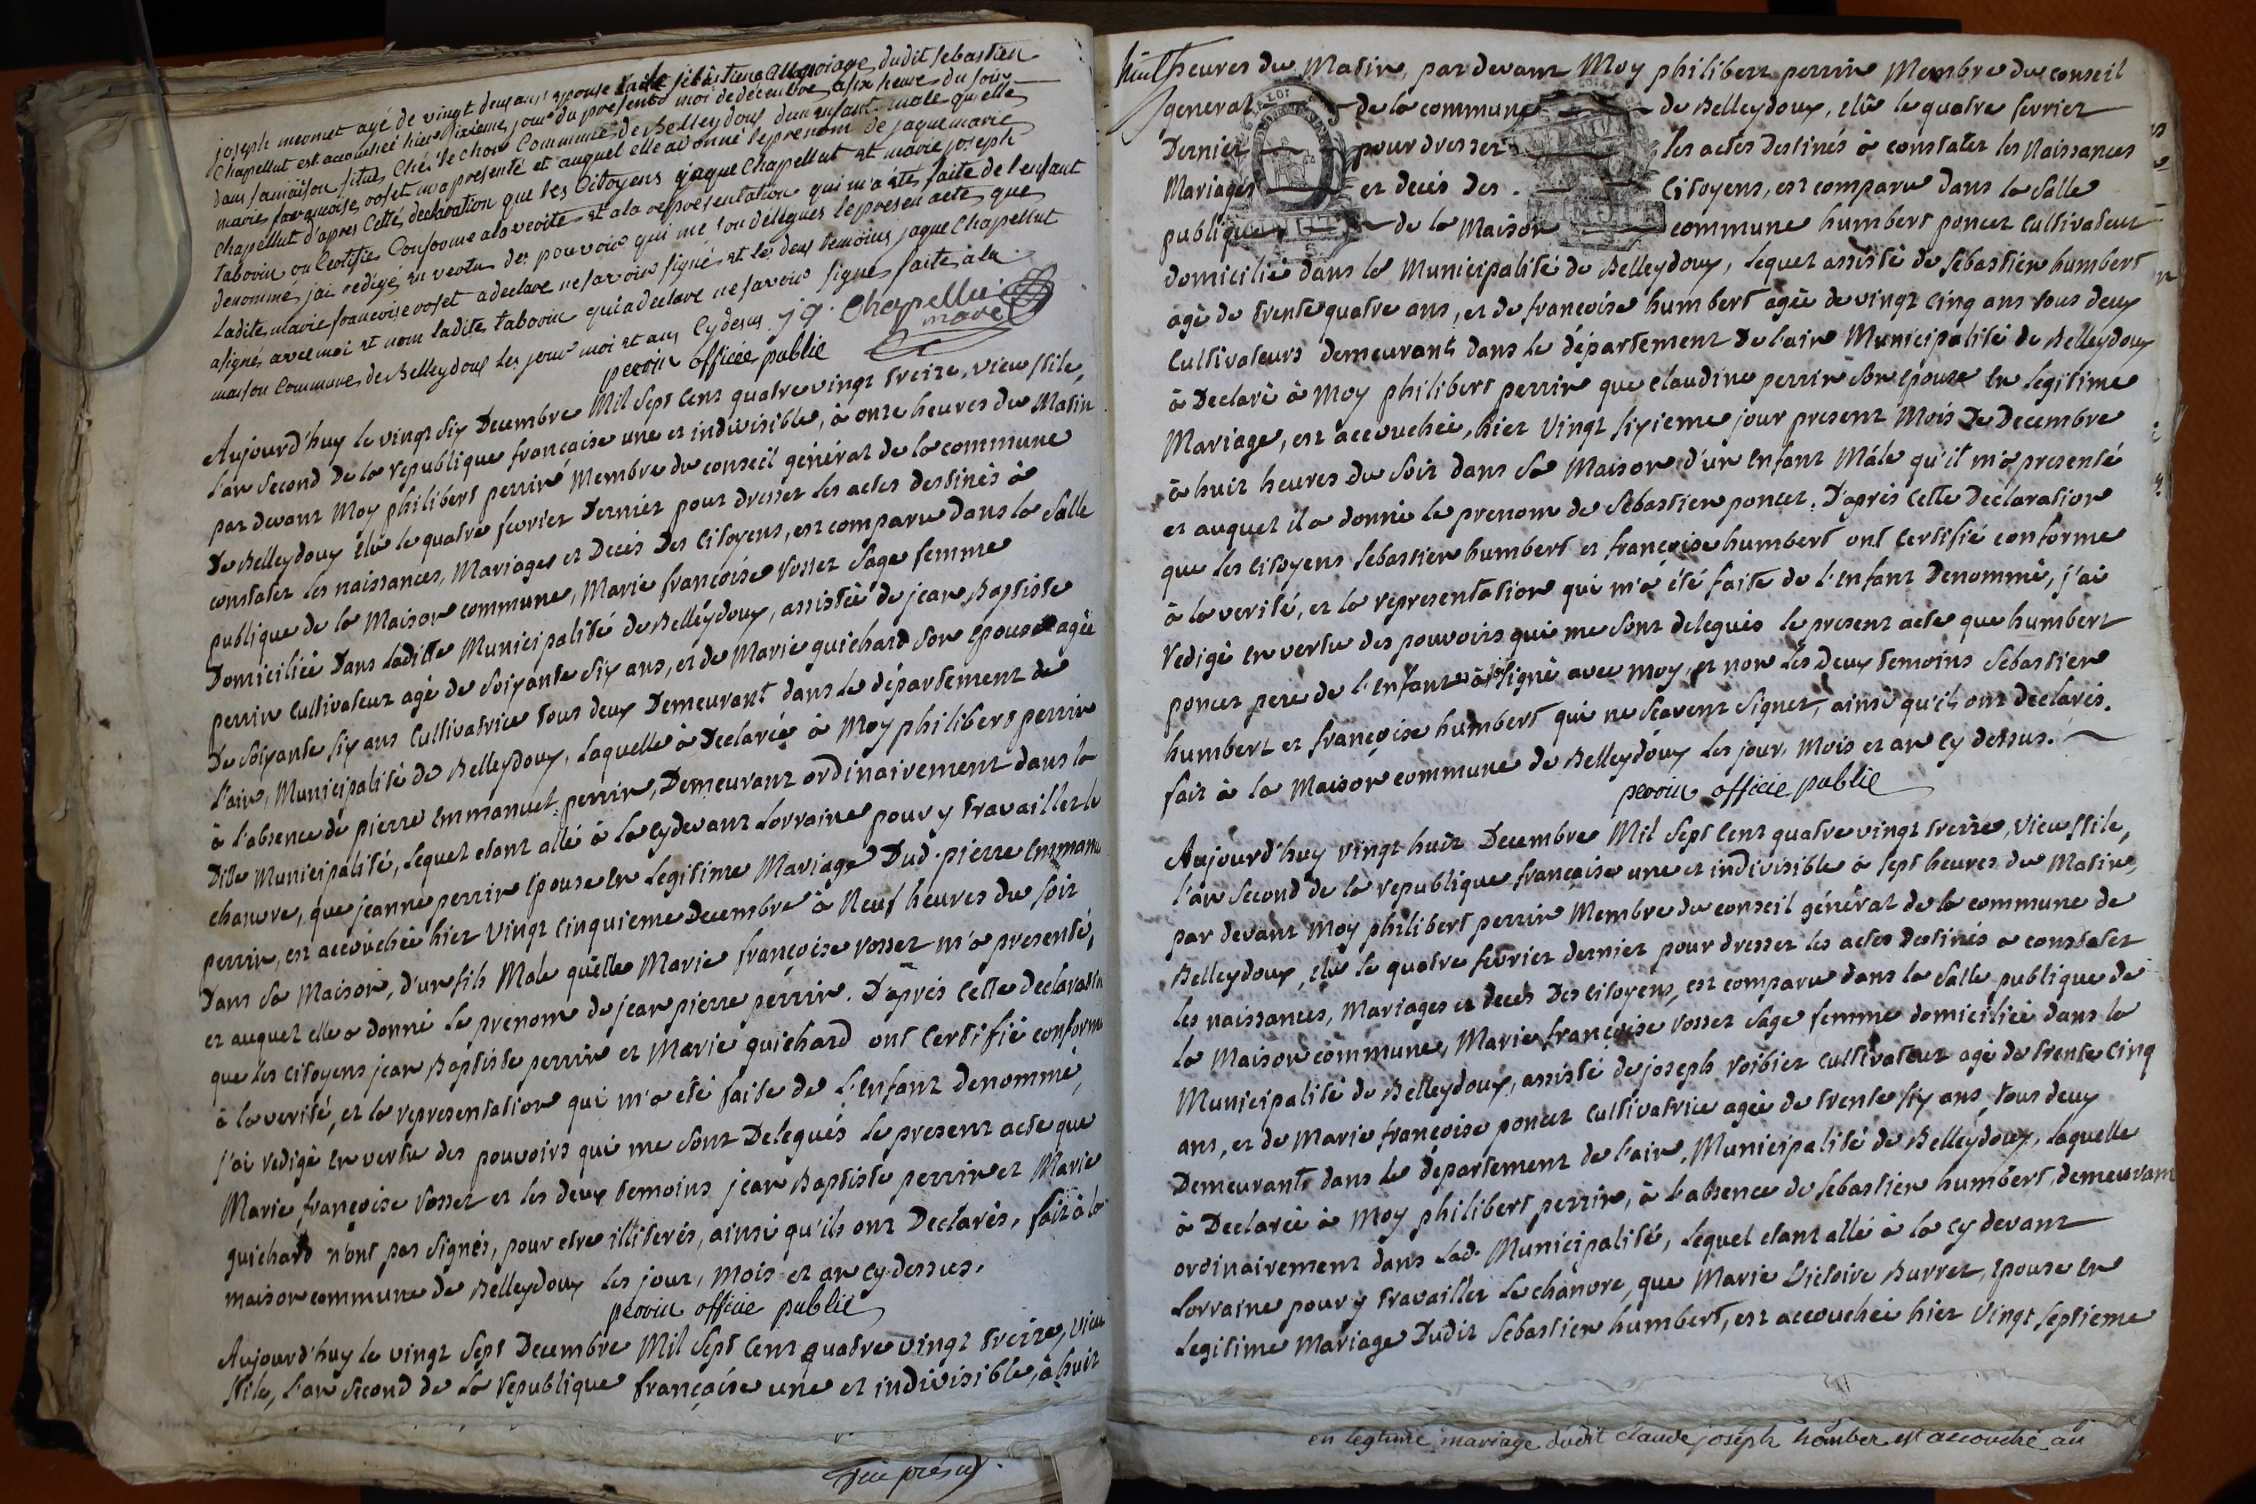 joseph meomet agé de vingt deux ans epouse mariage dudit sebastien
Chapellut est accouchée hier jour du present moi de decembre a six heure du soir
dans sa maison situé Ché le chou Commune de Belleydoux d'un enfant male qu'elle
marie françoise roset m'a presenté et auquel elle a donné le prenom de jaque marie
Chapellut d'apres Cette declaration que les Citoyens jaque Chapellut et marie joseph
tabouin on Certifié Conforme a la verité et a la representation qui m'a été faite de l'enfant
denommé, j'ai redigé en vertu des pouvoir qui me son délégues le presen acte que
Ladite marie françoise roset a declaré ne savoir signé et les deux temoins jaque Chapellut
a signé avec moi et nom ladite tabouin qui a declaré ne savoir signé faite a la
maison Commune de Belleydoux les jour moi et an Cy desus jq. Chapellu
perrin officie public
Aujourd'huy le vingt six Decembre Mil sept cent quatre vingt treize, vieu stile,
l'an second de la republique française une et indivisible, à onze heures du Matin
par devant Moy philibert perrin Membre du conseil général de la commune
de Belleydoux élu le quatre fevrier Dernier pour dresser les actes destinés à
constater les naissances, Mariages et Decès des Citoyens, est comparu dans la Salle
publique de la Maison commune, Marie françoise rosset sage femme
Domiciliée dans laditte Municipalité de Belleydoux, assistée de jean Baptiste
perrin cultivateur agé de soixante six ans, et de Marie guichard son epouse agée
De soixante six ans Cultivatrice tous deux Demeurant dans le département de
l'ain, Municipalité de Belleydoux, laquelle à Declarée à Moy philibert perrin
à l'absence de pierre Emmanuel perrin, Demeurant ordinairement dans la
Dite Municipalité, lequel etant allé à la cydevant Lorraine pour y travailler le
chanvre, que jeanne perrin epouse en legitime Mariage Dud. pierre Emmanu
perrin, est accouchée hier vingt cinquieme Decembre à Neuf heures du soir
Dans sa Maison, d'un fils Mâle qu'elle Marie françoise rosset m'a presenté,
et auquel elle a donné le prenom de jean pierre perrin. D'après Cette declaration
que les citoyens jean Baptiste perrin et Marie guichard ont Certifié conforme
à la verité, et la representation qui m'a été faite de l'Enfant denommé,
j'ai redigé en vertu des pouvoirs qui me sont Delegués le present acte que
Marie françoise rosset et les deux temoins jean Baptiste perrin et Marie
guichard n'ont pas signés, pour etre illiterés, ainsi qu'ils ont Declarés, fait à la
maison commune de Belleydoux les jour, mois et an cy-dessus.
perrin officie public
Aujourd'huy le vingt sept Decembre Mil sept Cent quatre vingt treize, vieu
stile, l'an second de la republique française une et indivisible, à huit
huit heures du Matin, par devant Moy philibert perrin Membre du conseil
general de la commune de Belleydoux, élu le quatre fevrier
Dernier pour dresser les actes destinés à constater les Naissances
Mariages et decès des Citoyens, est comparu dans la Salle
publique de la Maison commune humbert poncet cultivateur
domicilié dans la Municipalité de Belleydoux, lequel assisté de sebastien humbert
agé de trente quatre ans, et de françoise humbert agée de vingt cinq ans tous deux
Cultivateurs demeurants dans le département De l'ain Municipalité de Belleydoux
à Declaré à Moy philibert perrin que Claudine perrin son epouse en legitime
Mariage, est accouchée, hier vingt sixieme jour present Mois De Decembre
à huit heures du soir dans sa Maison d'un Enfant Mâle qu'il m'a presenté
et auquel il a donné le prenom de Sebastien poncet. D'après Cette Declaration
que les citoyens sebastien humbert et françoise humbert ont Certifié conforme
à la verité, et la representation qui m'a été faite de l'Enfant Denommé, j'ai
redigé en vertu des pouvoirs qui me sont delegués le present acte que humbert
poncet pere de l'enfant à signé avec moy, et non les deux temoins Sebastien
humbert et françoise humbert qui ne sçavent signer, ainsi qu'ils ont declarés.
fait à la Maison commune de Belleydoux les jour, Mois et an cy dessus.
perrin officie public
Aujourd'huy vingt huit Decembre Mil sept cent quatre vingt treize, vieu stile,
l'an second de la republique française une et indivisible à sept heures du Matin,
par devant Moy philibert perrin Membre du conseil général de la commune de
Belleydoux, élu le quatre fevrier dernier pour dresser les actes destinés à constater
les naissances, Mariages et decès Des citoyens, est comparu dans la Salle publique de
la Maison commune, Marie françoise rosset sage femme domiciliée dans la
Municipalité de Belleydoux, assisté de joseph roibier cultivateur agé de trente cinq
ans, et de Marie françoise poncet cultivatrice agée de trente six ans, tous deux
Demeurants dans le département de l'ain, Municipalité de Belleydoux, laquelle
à Declarée à Moy philibert perrin, à l'absence de sebastien humbert, demeurant
ordinairement dans lad. Municipalité, lequel etant allé à la cy devant
Lorraine pour y travailler le chanvre, que Marie Victoire Burret, epouse en
legitime Mariage Dudit Sebastien humbert, est accouchée hier vingt septieme
en legtime mariage dudit Claude joseph homber est accouché au